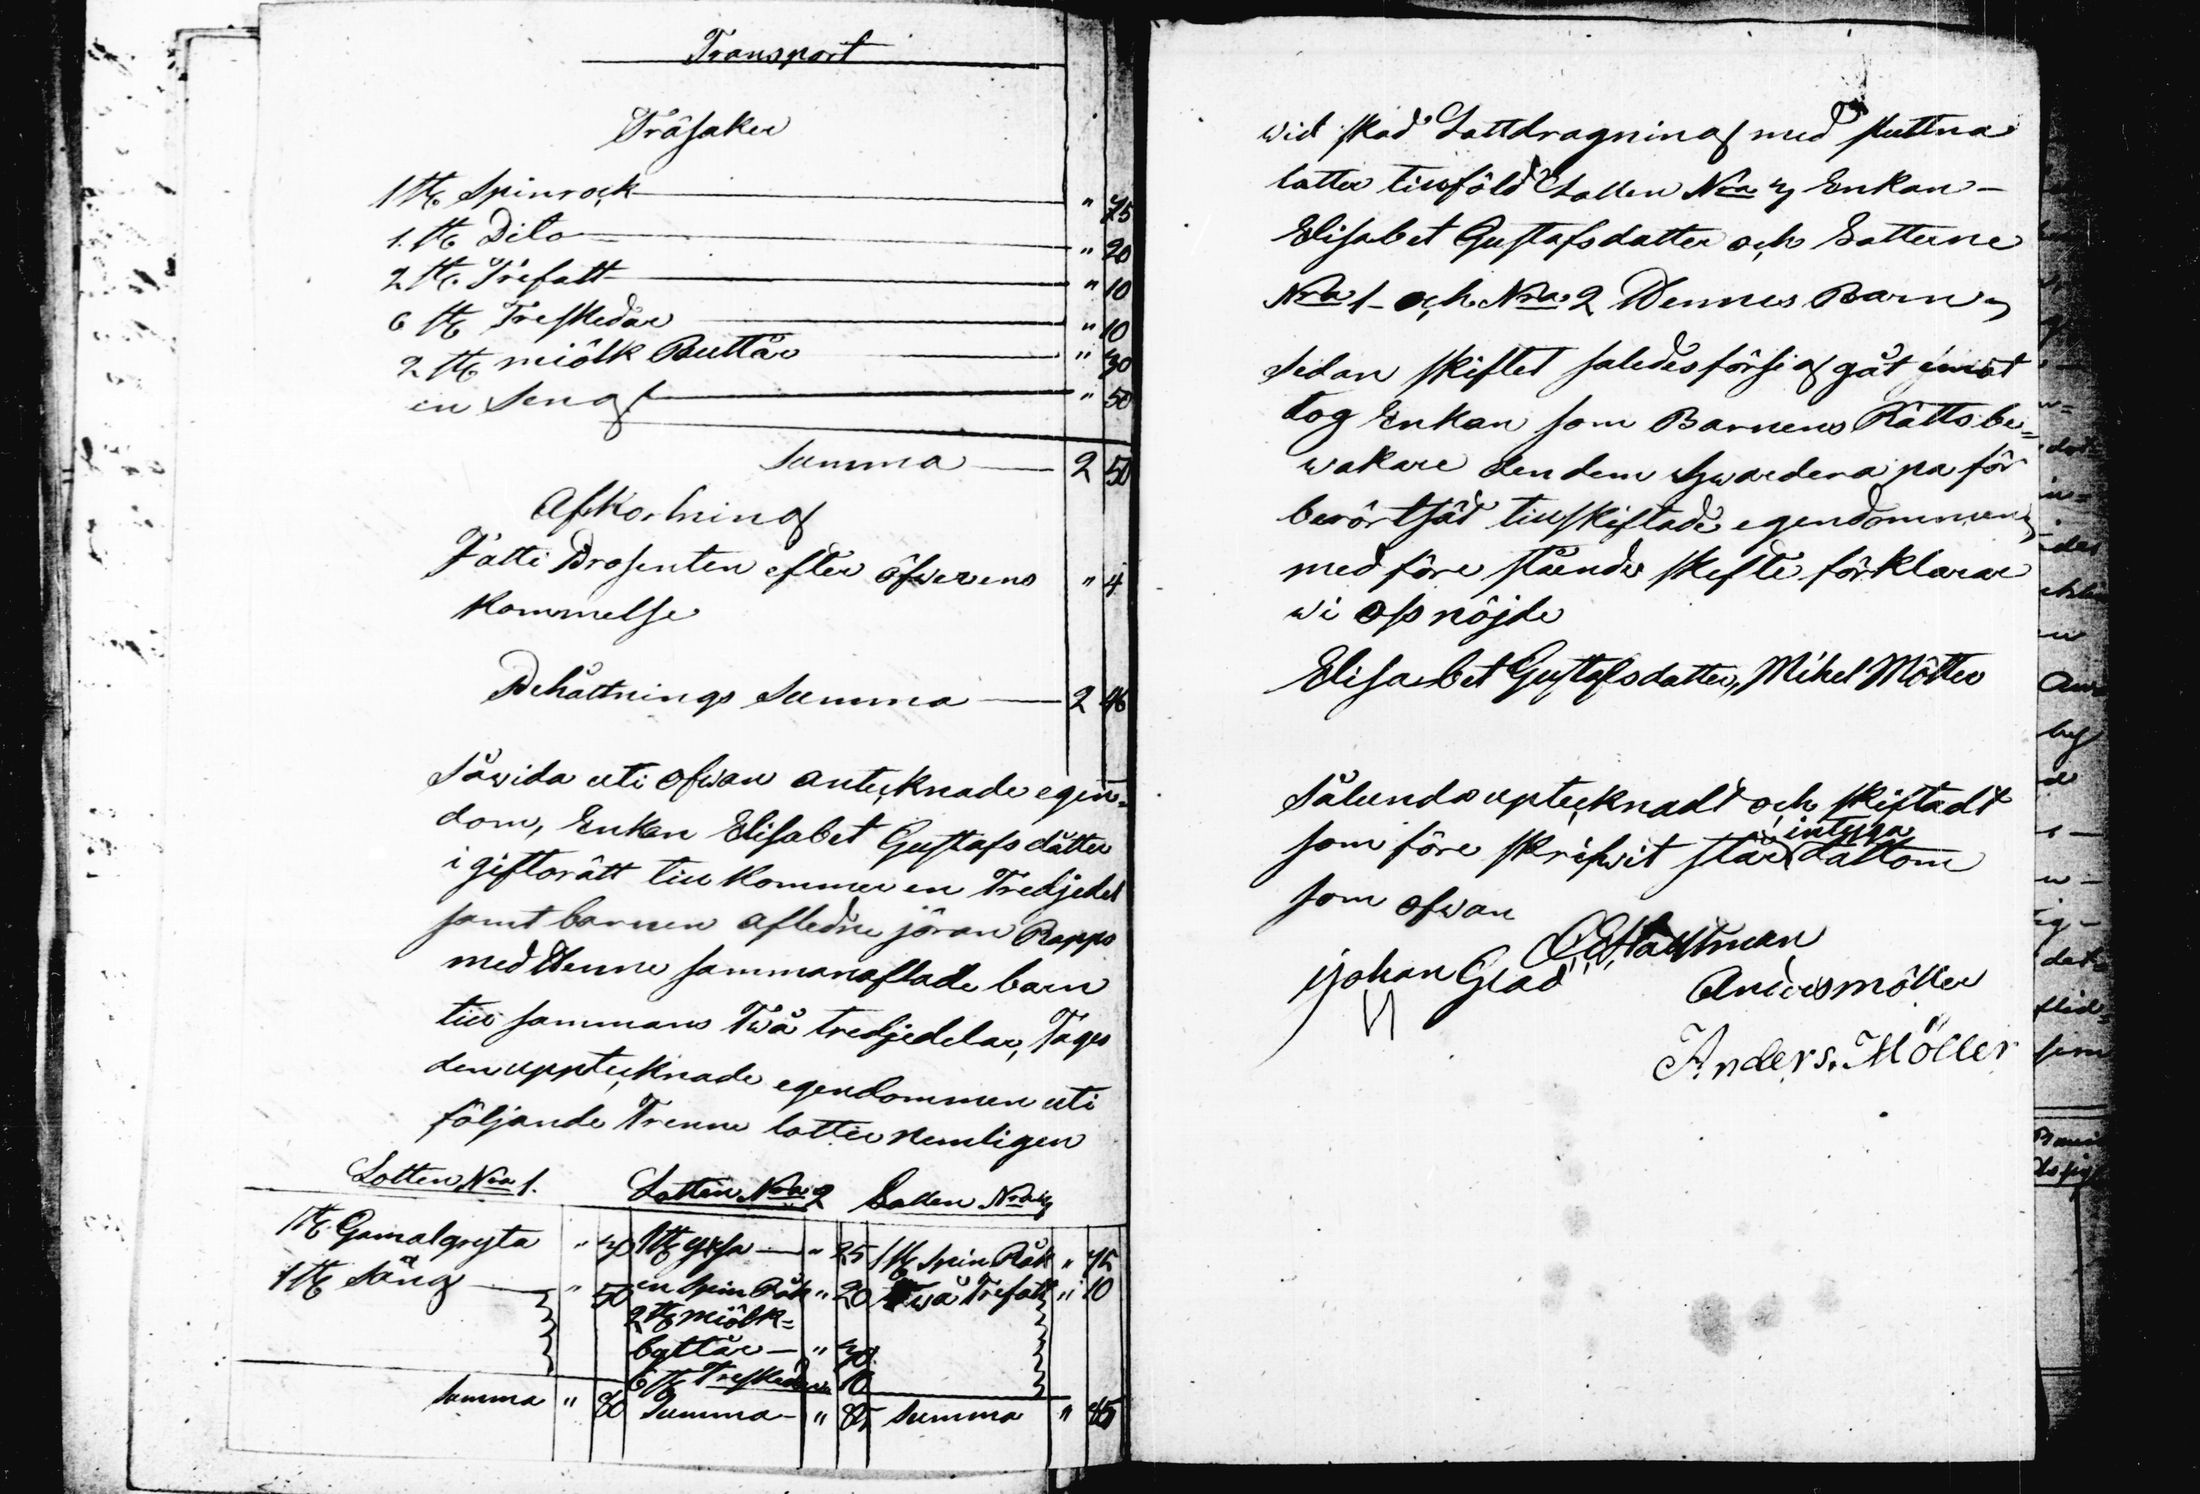 Transport
Träsaker
1 st. Spinrock " 75
1. st. Dito " 20
2 st. Trefatt " 10
6 st Treskedar " 10
2 st miölk Buttar " 30
en Seng " 50
Summa 2 50
Afkortning
Fatti Prosenten efter öfwerens " 4
kommelse
Behåltnings Summa 2 46
Såwida uti ofwan antecknade egen=
dom, Enkan Elisabet Gustafs datter
i giftorätt till kommer en Tredjedel
samt barnen afledne jöran Rapps
med Denne sammanaflade barn
till sammans Twå tredjedelar, Tages
den upptecknade egendommen uti
följande Trenne lotter nemligen
Lotten Nro 1. Lotten Nro 2 Lotten Nro 3
1 st. Gamalgryta " 30 1 st yxa " 25 1 st spin Råk " 75
1 st Säng " 50 en spin Råk " 20 Twå Trefatt " 10
2 st miölk=
byttar " 30
6 st Treskedar 10
Summa " 80 Summa " 85 Summa " 85
wid skad Lottdragning med sluttna
latter tillföld Lotten Nro 3 Enkan
Elisabet Gustafsdatter och Lotterne
Nro 1 och Nro 2 Dennes Barn,
Sedan skiftet saledes försig gåt emot
tog Enkan som Barnens Rätts be=
wakare den dem hwardera pa för
berört sät tillskiftade egendommen,
med före stående skifte förklarar
wi oss nöjde
Elisabet Gustafsdatter, Mihel Mötter
Sålunda uptecknadt och skiftadt
som före skrifwit står intyga dattom
som ofwan
johan Grad
Anders möller
Anders. Möller